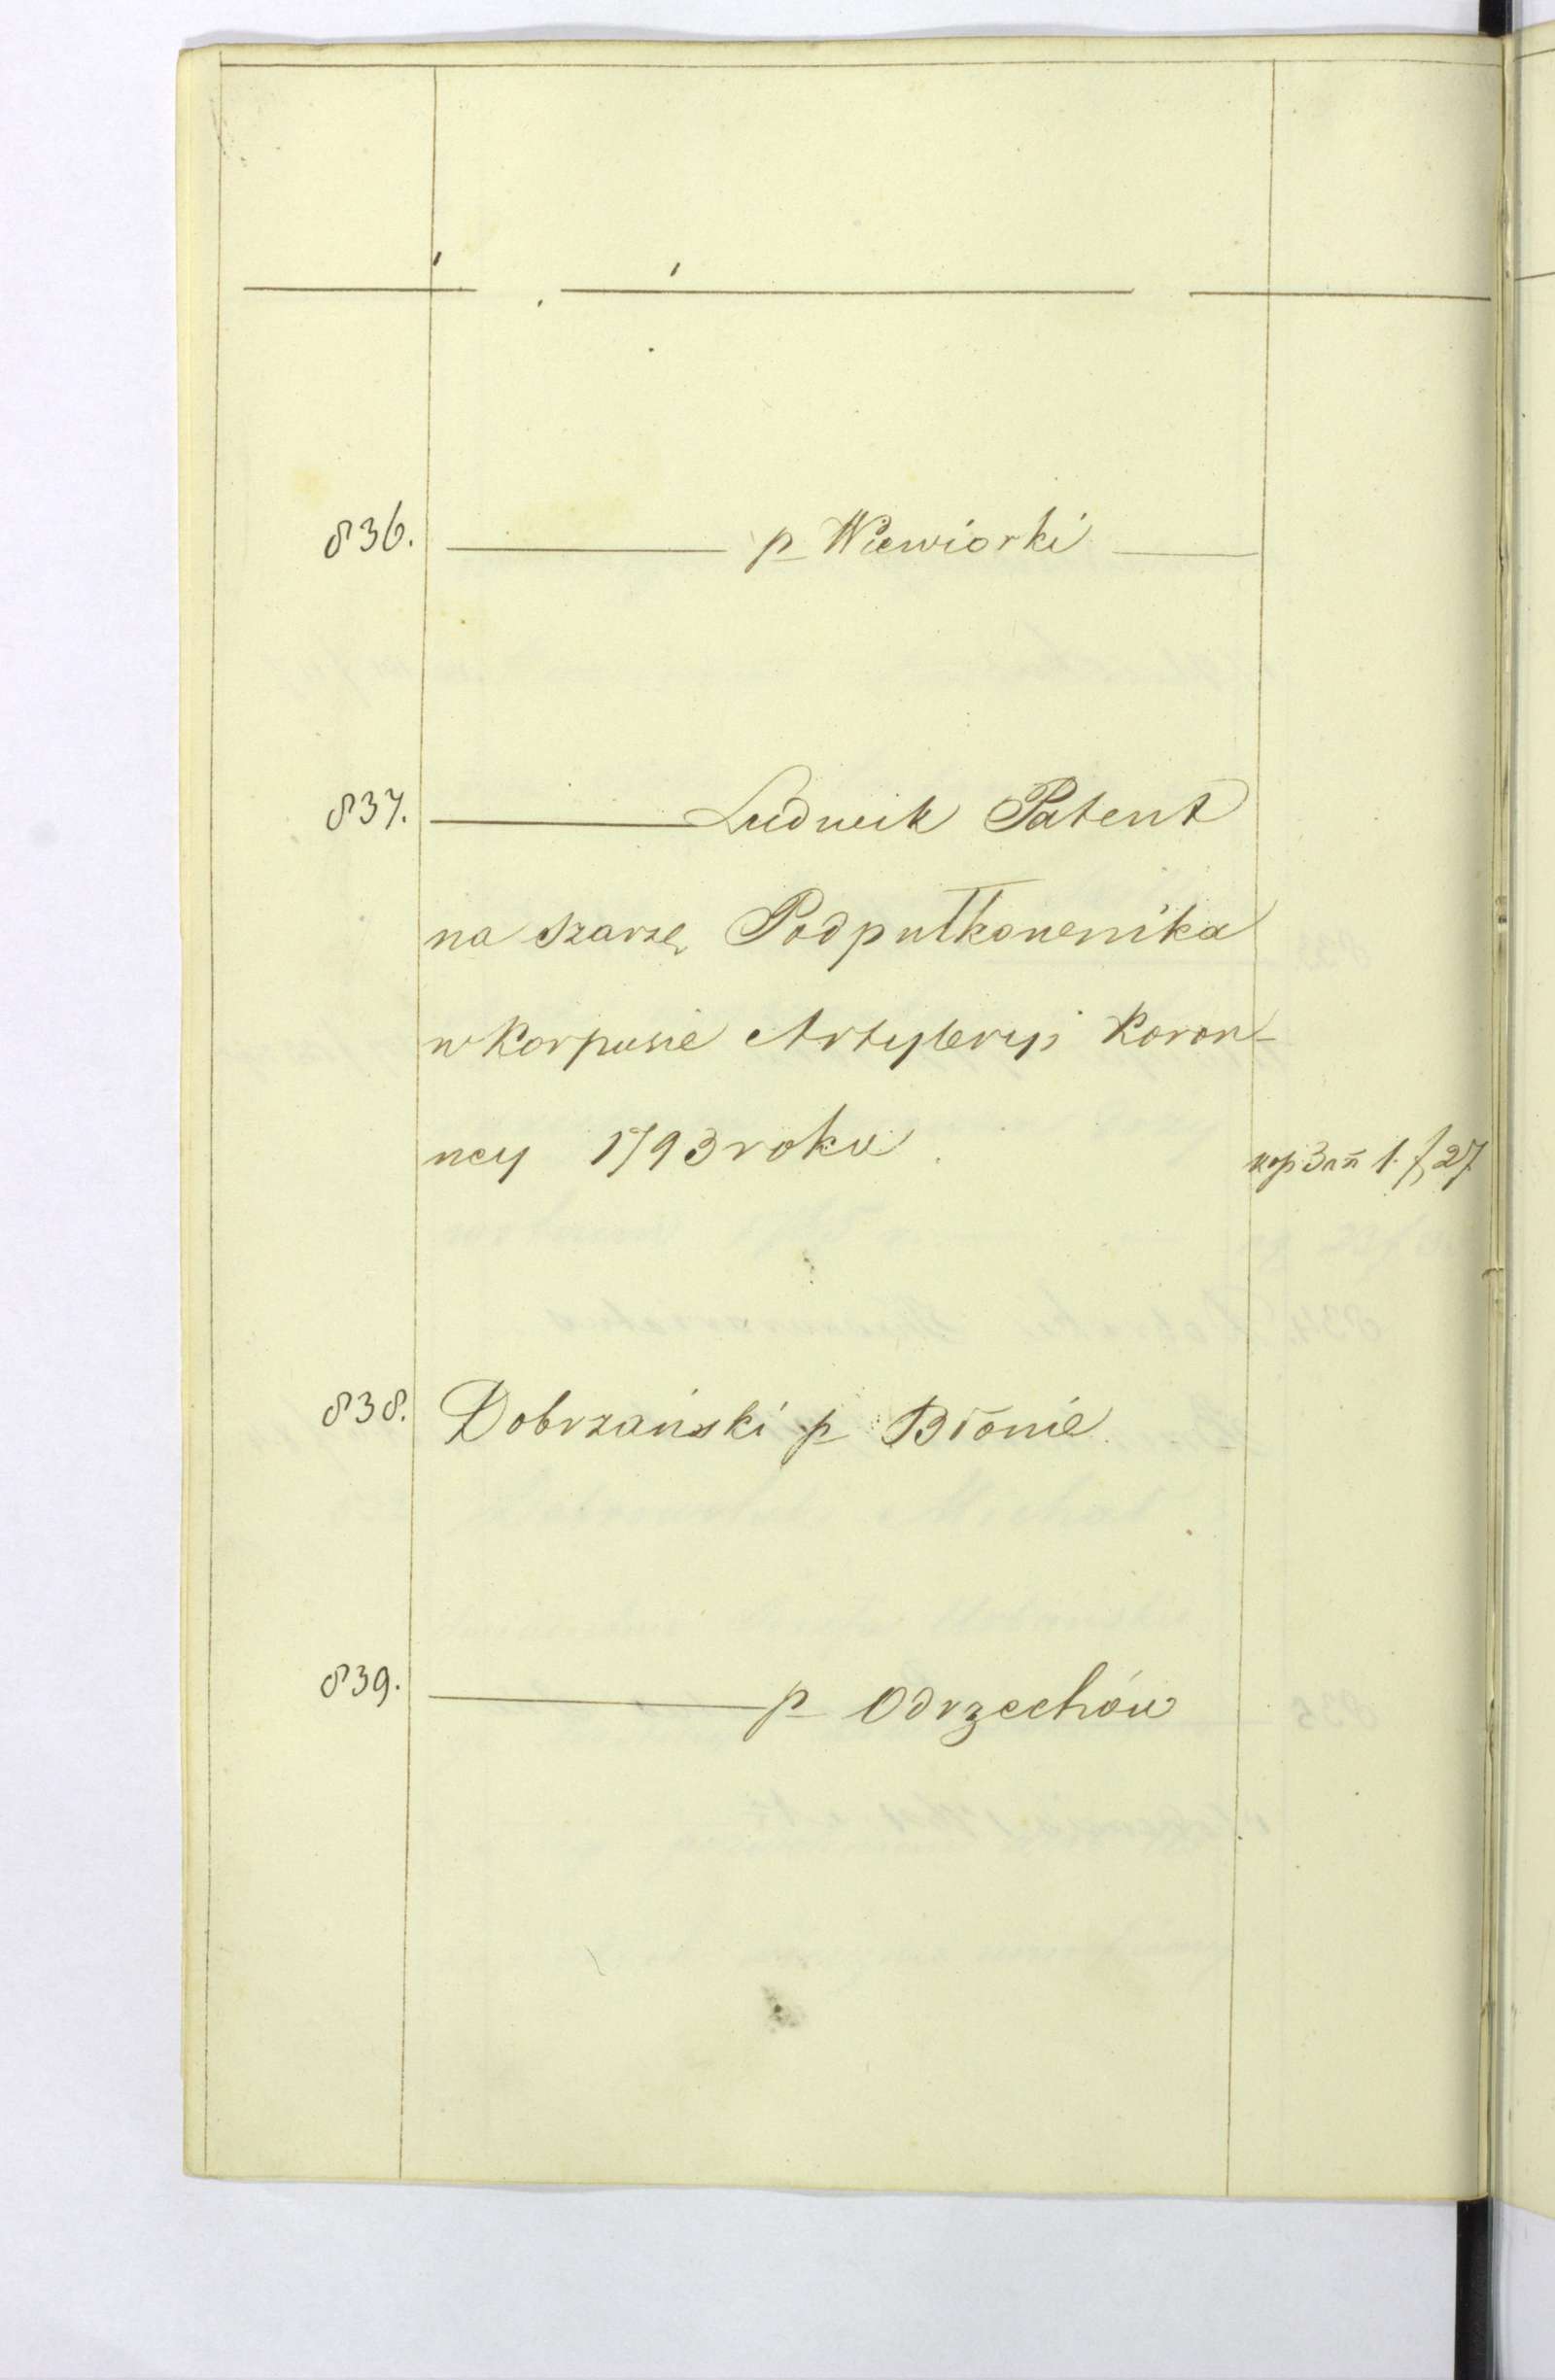 836. p Wiewiorki
837. Ludwik Patent
na szarzę Podpułkownika
w Korpusie Artyleryi Koron-
ney 1793 roku
kop 3 1. f 27
838. Dobrzański p Błonie
839. p Odrzechów